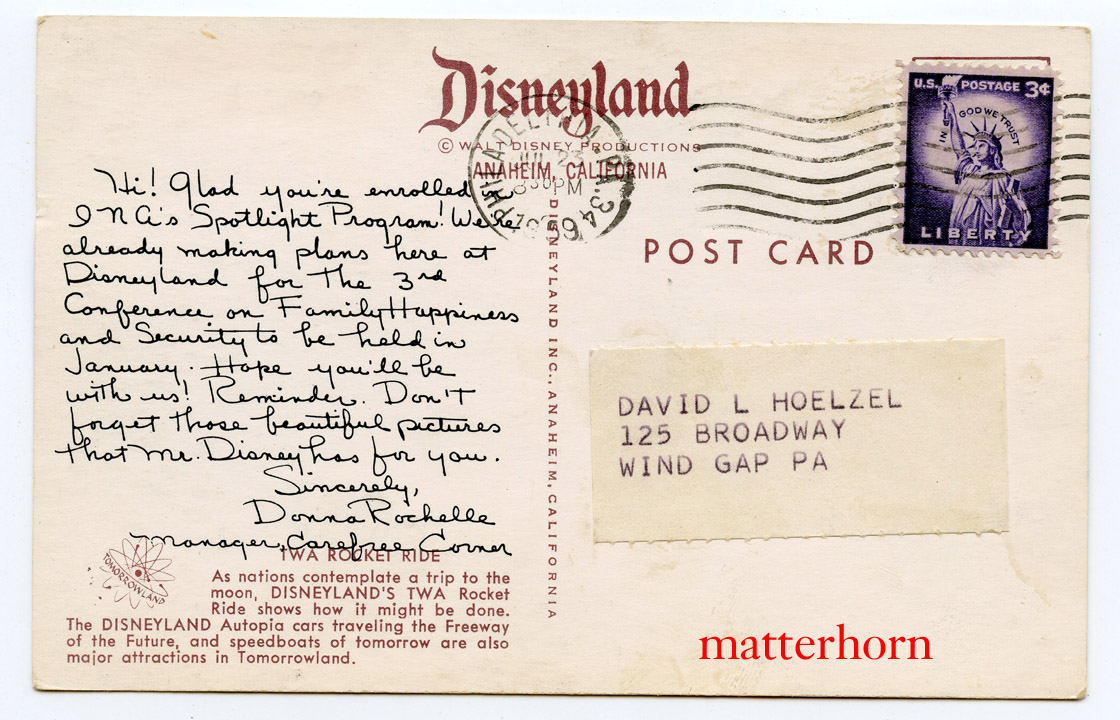 Disneyland
© WALT DISNEY PRODUCTIONS
ANAHEIM, CALIFORNIA
PHILADELPHIA, PA.
JUL 23
830 PM
U.S. POSTAGE 3¢
IN GOD WE TRUST
LIBERTY
POST CARD
Hi! Glad you're enrolled in
INA's Spotlight Program! We're
already making plans here at
Disneyland for the 3rd
Conference on Family Happiness
and Security to be held in
January. Hope you'll be
with us! Reminder. Don't
forget those beautiful pictures
that Mr. Disney has for you.
Sincerely,
Donna Rochelle
Manager, Carefree Corner
DISNEYLAND INC., ANAHEIM, CALIFORNIA
DAVID L HOELZEL
125 BROADWAY
WIND GAP PA
TOMORROWLAND
TWA ROCKET RIDE
As nations contemplate a trip to the
moon, DISNEYLAND'S TWA Rocket
Ride shows how it might be done.
The DISNEYLAND Autopia cars traveling the Freeway
of the Future, and speedboats of tomorrow are also
major attractions in Tomorrowland.
matterhorn